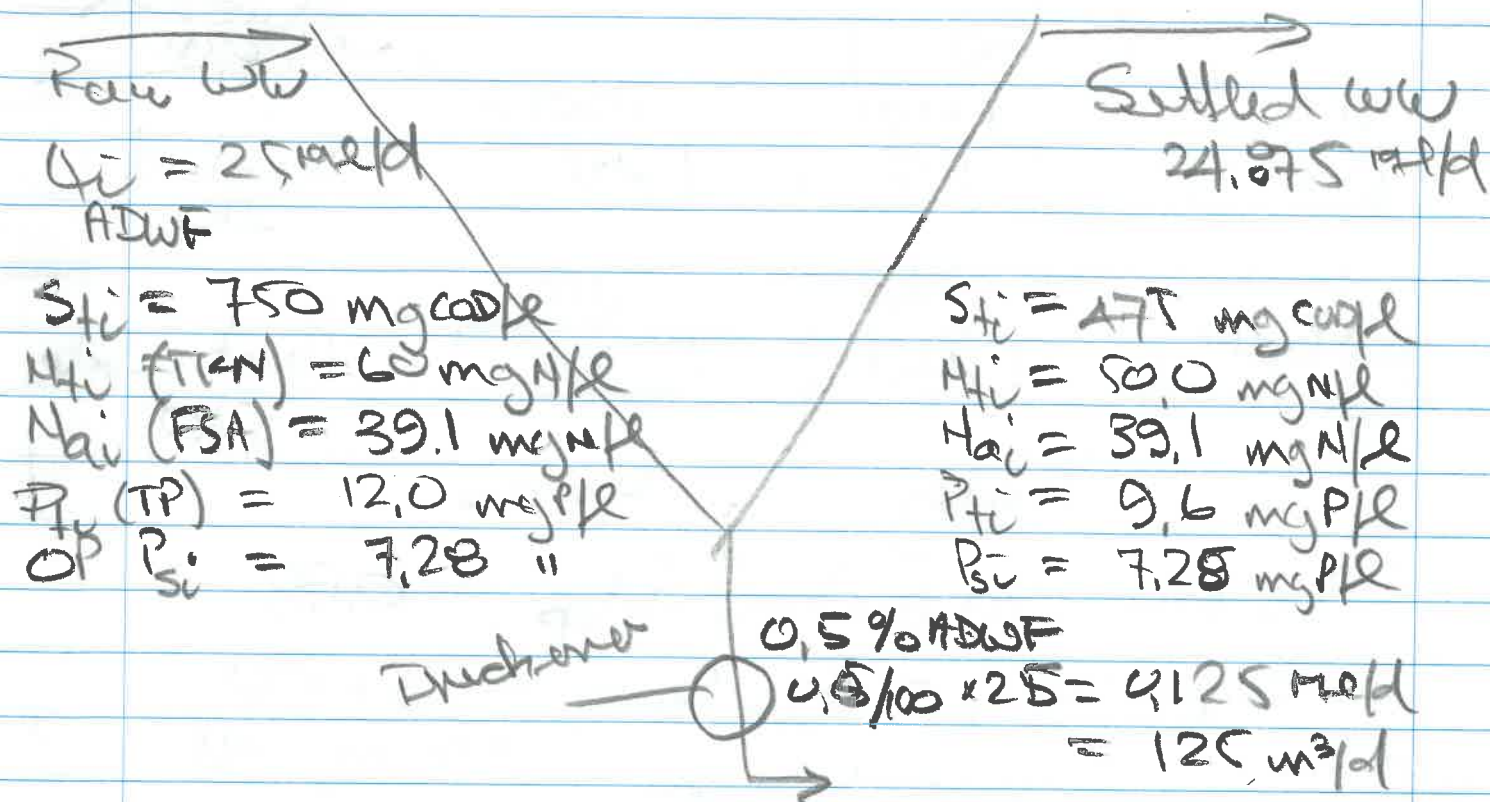 Raw WW
Qi = 25 Ml/d
ADWF
Sti = 750 mgCOD/l
Nti (TKN) = 60 mgN/l
Nai (FSA) = 39.1 mgN/l
Pti (TP) = 12,0 mgP/l
OP Psi = 7,28 "
Settled WW
24.875 Ml/d
Sti = 477 mgCOD/l
Nti = 50,0 mgN/l
Nai = 39,1 mgN/l
Pti = 9,6 mgP/l
Psi = 7,28 mgP/l
0,5 % ADWF
0,5/100 × 25 = 0,125 Ml/d
= 125 m³/d